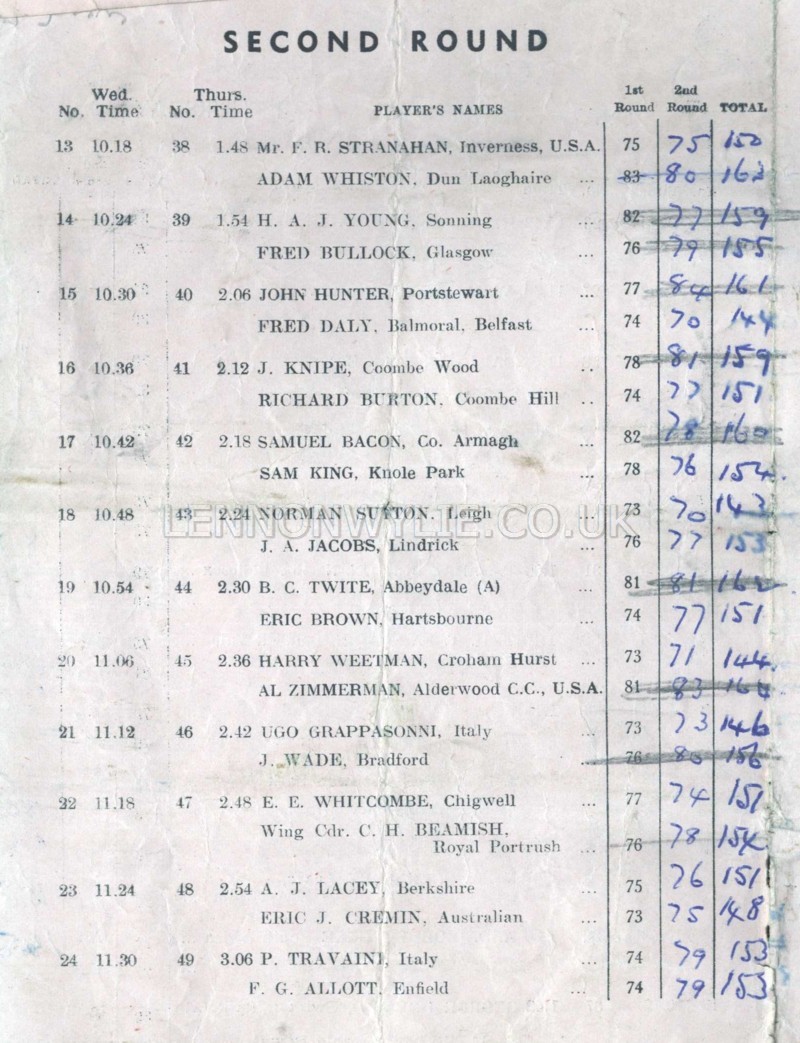 SECOND ROUND
Wed. Thurs. 1st 2nd
No. Time No. Time PLAYER'S NAMES Round Round TOTAL
13 10.18 38 1.48 Mr. F. R. STRANAHAN, Inverness, U.S.A. 75 75 150
ADAM WHISTON, Dun Laoghaire ... 83 80 163
14 10.24 39 1.54 H. A. J. YOUNG, Sonning ... 82 77 159
FRED BULLOCK, Glasgow ... 76 79 155
15 10.30 40 2.06 JOHN HUNTER, Portstewart ... 77 84 161
FRED DALY, Balmoral, Belfast ... 74 70 144
16 10.36 41 2.12 J. KNIPE, Coombe Wood .. 78 81 159
RICHARD BURTON, Coombe Hill .. 74 77 151
17 10.42 42 2.18 SAMUEL BACON, Co. Armagh ... 82 78 160
SAM KING, Knole Park ... 78 76 154
18 10.48 43 2.24 NORMAN SUTTON, Leigh ... 73 70 143
LENNONWYLIE.CO.UK
J. A. JACOBS, Lindrick ... 76 77 153
19 10.54 44 2.30 B. C. TWITE, Abbeydale (A) ... 81 81 162
ERIC BROWN, Hartsbourne ... 74 77 151
20 11.06 45 2.36 HARRY WEETMAN, Croham Hurst ... 73 71 144
AL ZIMMERMAN, Alderwood C.C., U.S.A. 81 83 164
21 11.12 46 2.42 UGO GRAPPASONNI, Italy ... 73 73 146
J. WADE, Bradford ... 76 80 156
22 11.18 47 2.48 E. E. WHITCOMBE, Chigwell ... 77 74 151
Wing Cdr. C. H. BEAMISH,
Royal Portrush ... 76 78 154
23 11.24 48 2.54 A. J. LACEY, Berkshire ... 75 76 151
ERIC J. CREMIN, Australian ... 73 75 148
24 11.30 49 3.06 P. TRAVAINI, Italy ... 74 79 153
F. G. ALLOTT, Enfield ... 74 79 153